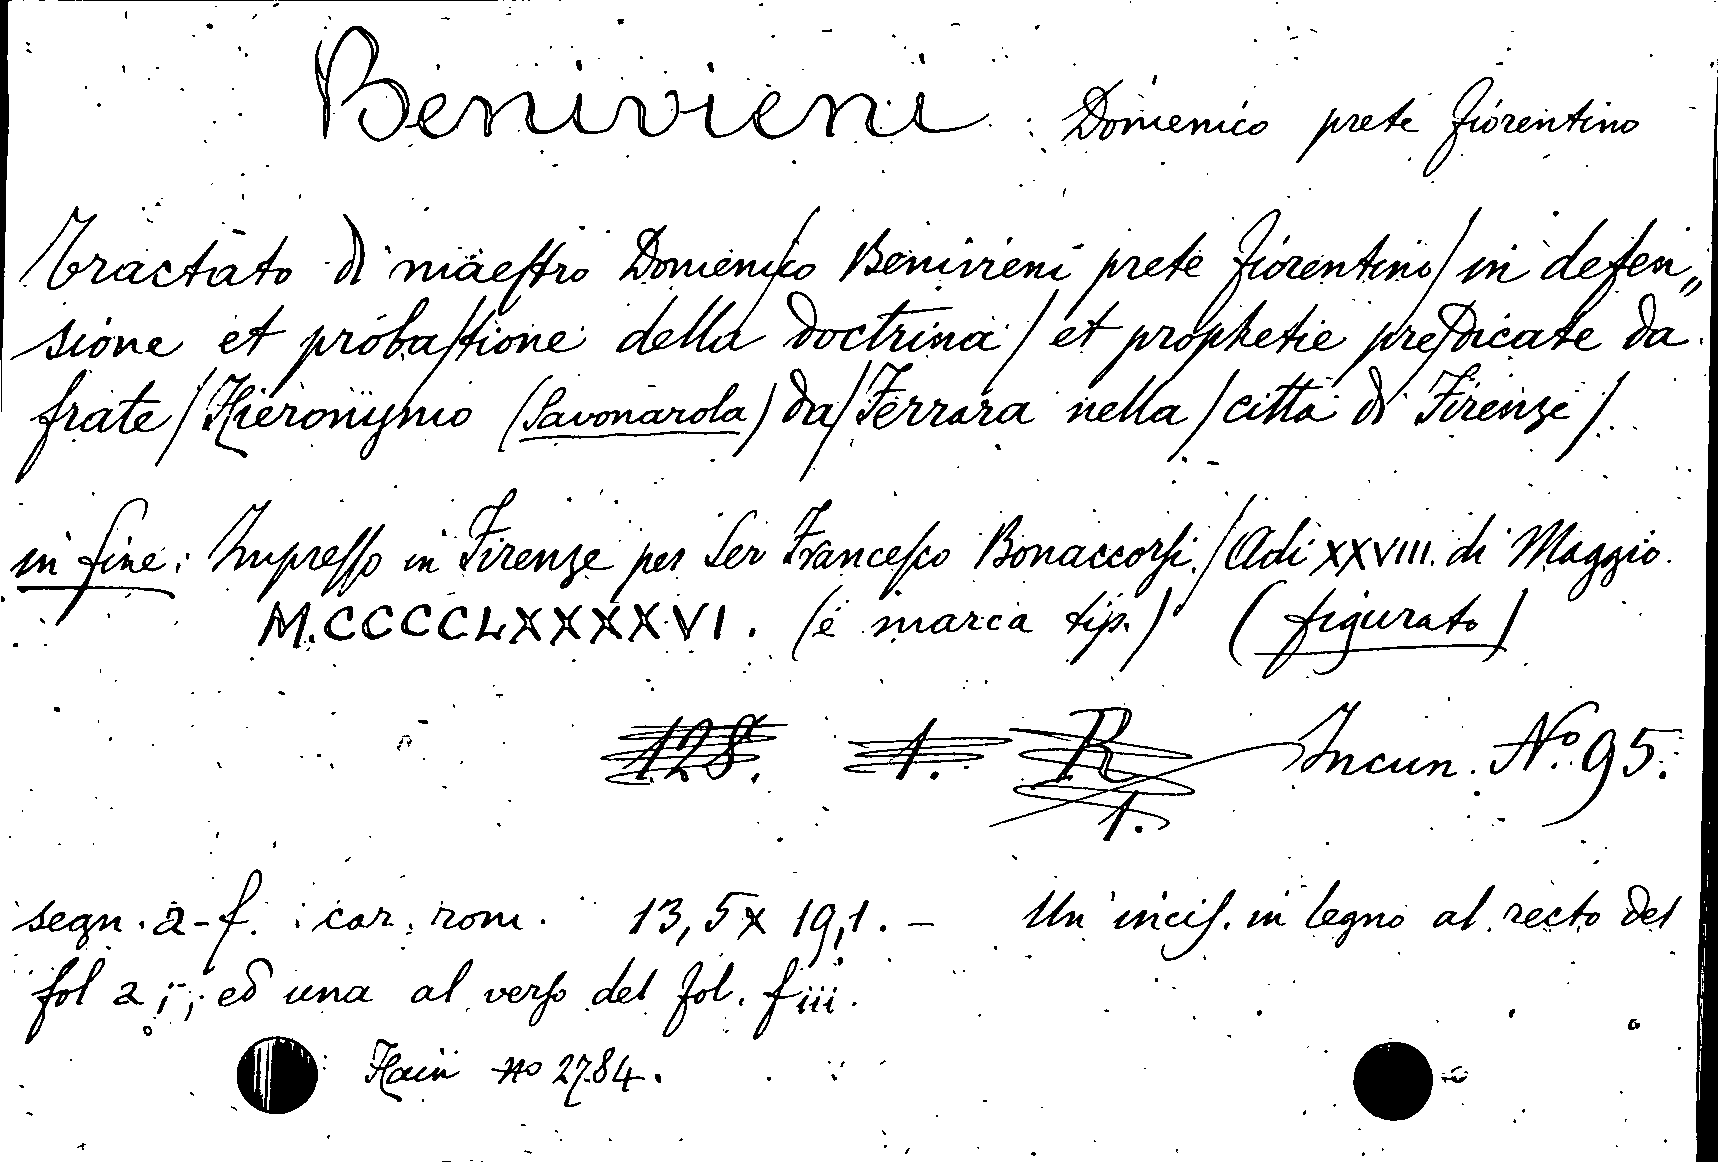 Benivieni : Domenico prete fiorentino
Tractato di maestro Domeni/co Benivieni prete fiorentino/ in defen„
sione et proba/tione della doctrina/ et prophetie pre/dicate da
frate/Hieronymo (Savonarola) da/Ferrara nella/città di Firenze/.
in fine: Impresso in Firenze per Ser Francesco Bonaccorsi./Adi XXVIII. di Maggio.
M.CCCCLXXXXVI. (é marca tip.) (figurato)
128. 1. R Incun. No. 95.
1.
segn. a-f. : car. rom. 13,5 x 19,1. - Un' incis. in legno al recto del
fol a i; ed una al verso del fol. f iii.
Hain no 2784.